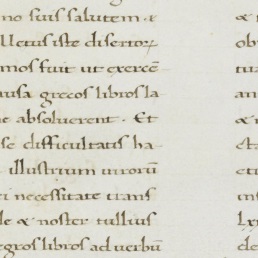 no suis salutem · &
Uetus iste disertoꝝ ob
mos fuit ut exercē tu
usa grecos libros la an
ne absoluerent · Et &
se difficultatis ha
illustrium uirorū etu
ri necessitate trans ins
de & noster tullius Lx
egros libros ad uerbū de